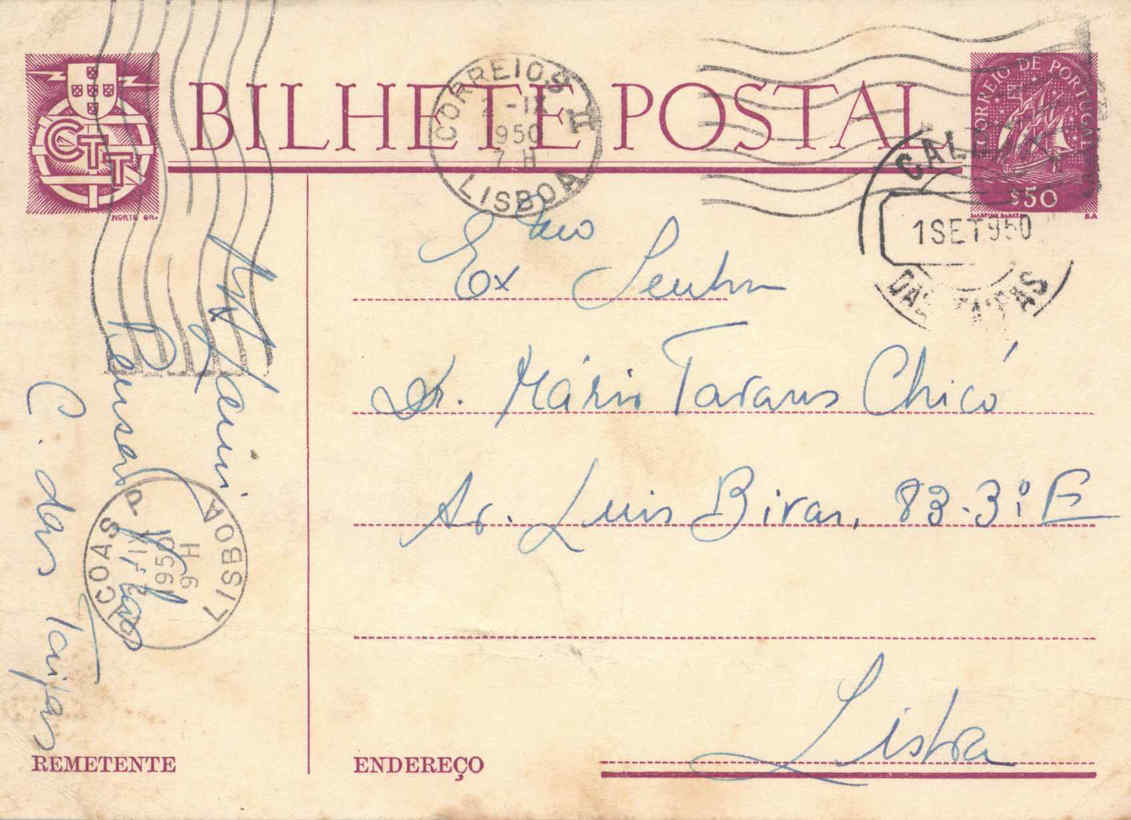 BILHETE POSTAL
CTT
NORTE GR.
CORREIO DE PORTUGAL
$50
CORREIOS
2-IX
1950
7 H
LISBOA
II
1 SET 950
DAS TAIPAS
Exmo Senhor
Dr. Mário Tavares Chicó
Av. Luis Bivar, 83-3º E
Lisboa
ENDEREÇO
Pensão
C. das Taipas
REMETENTE
LISBOA
9 H
1950